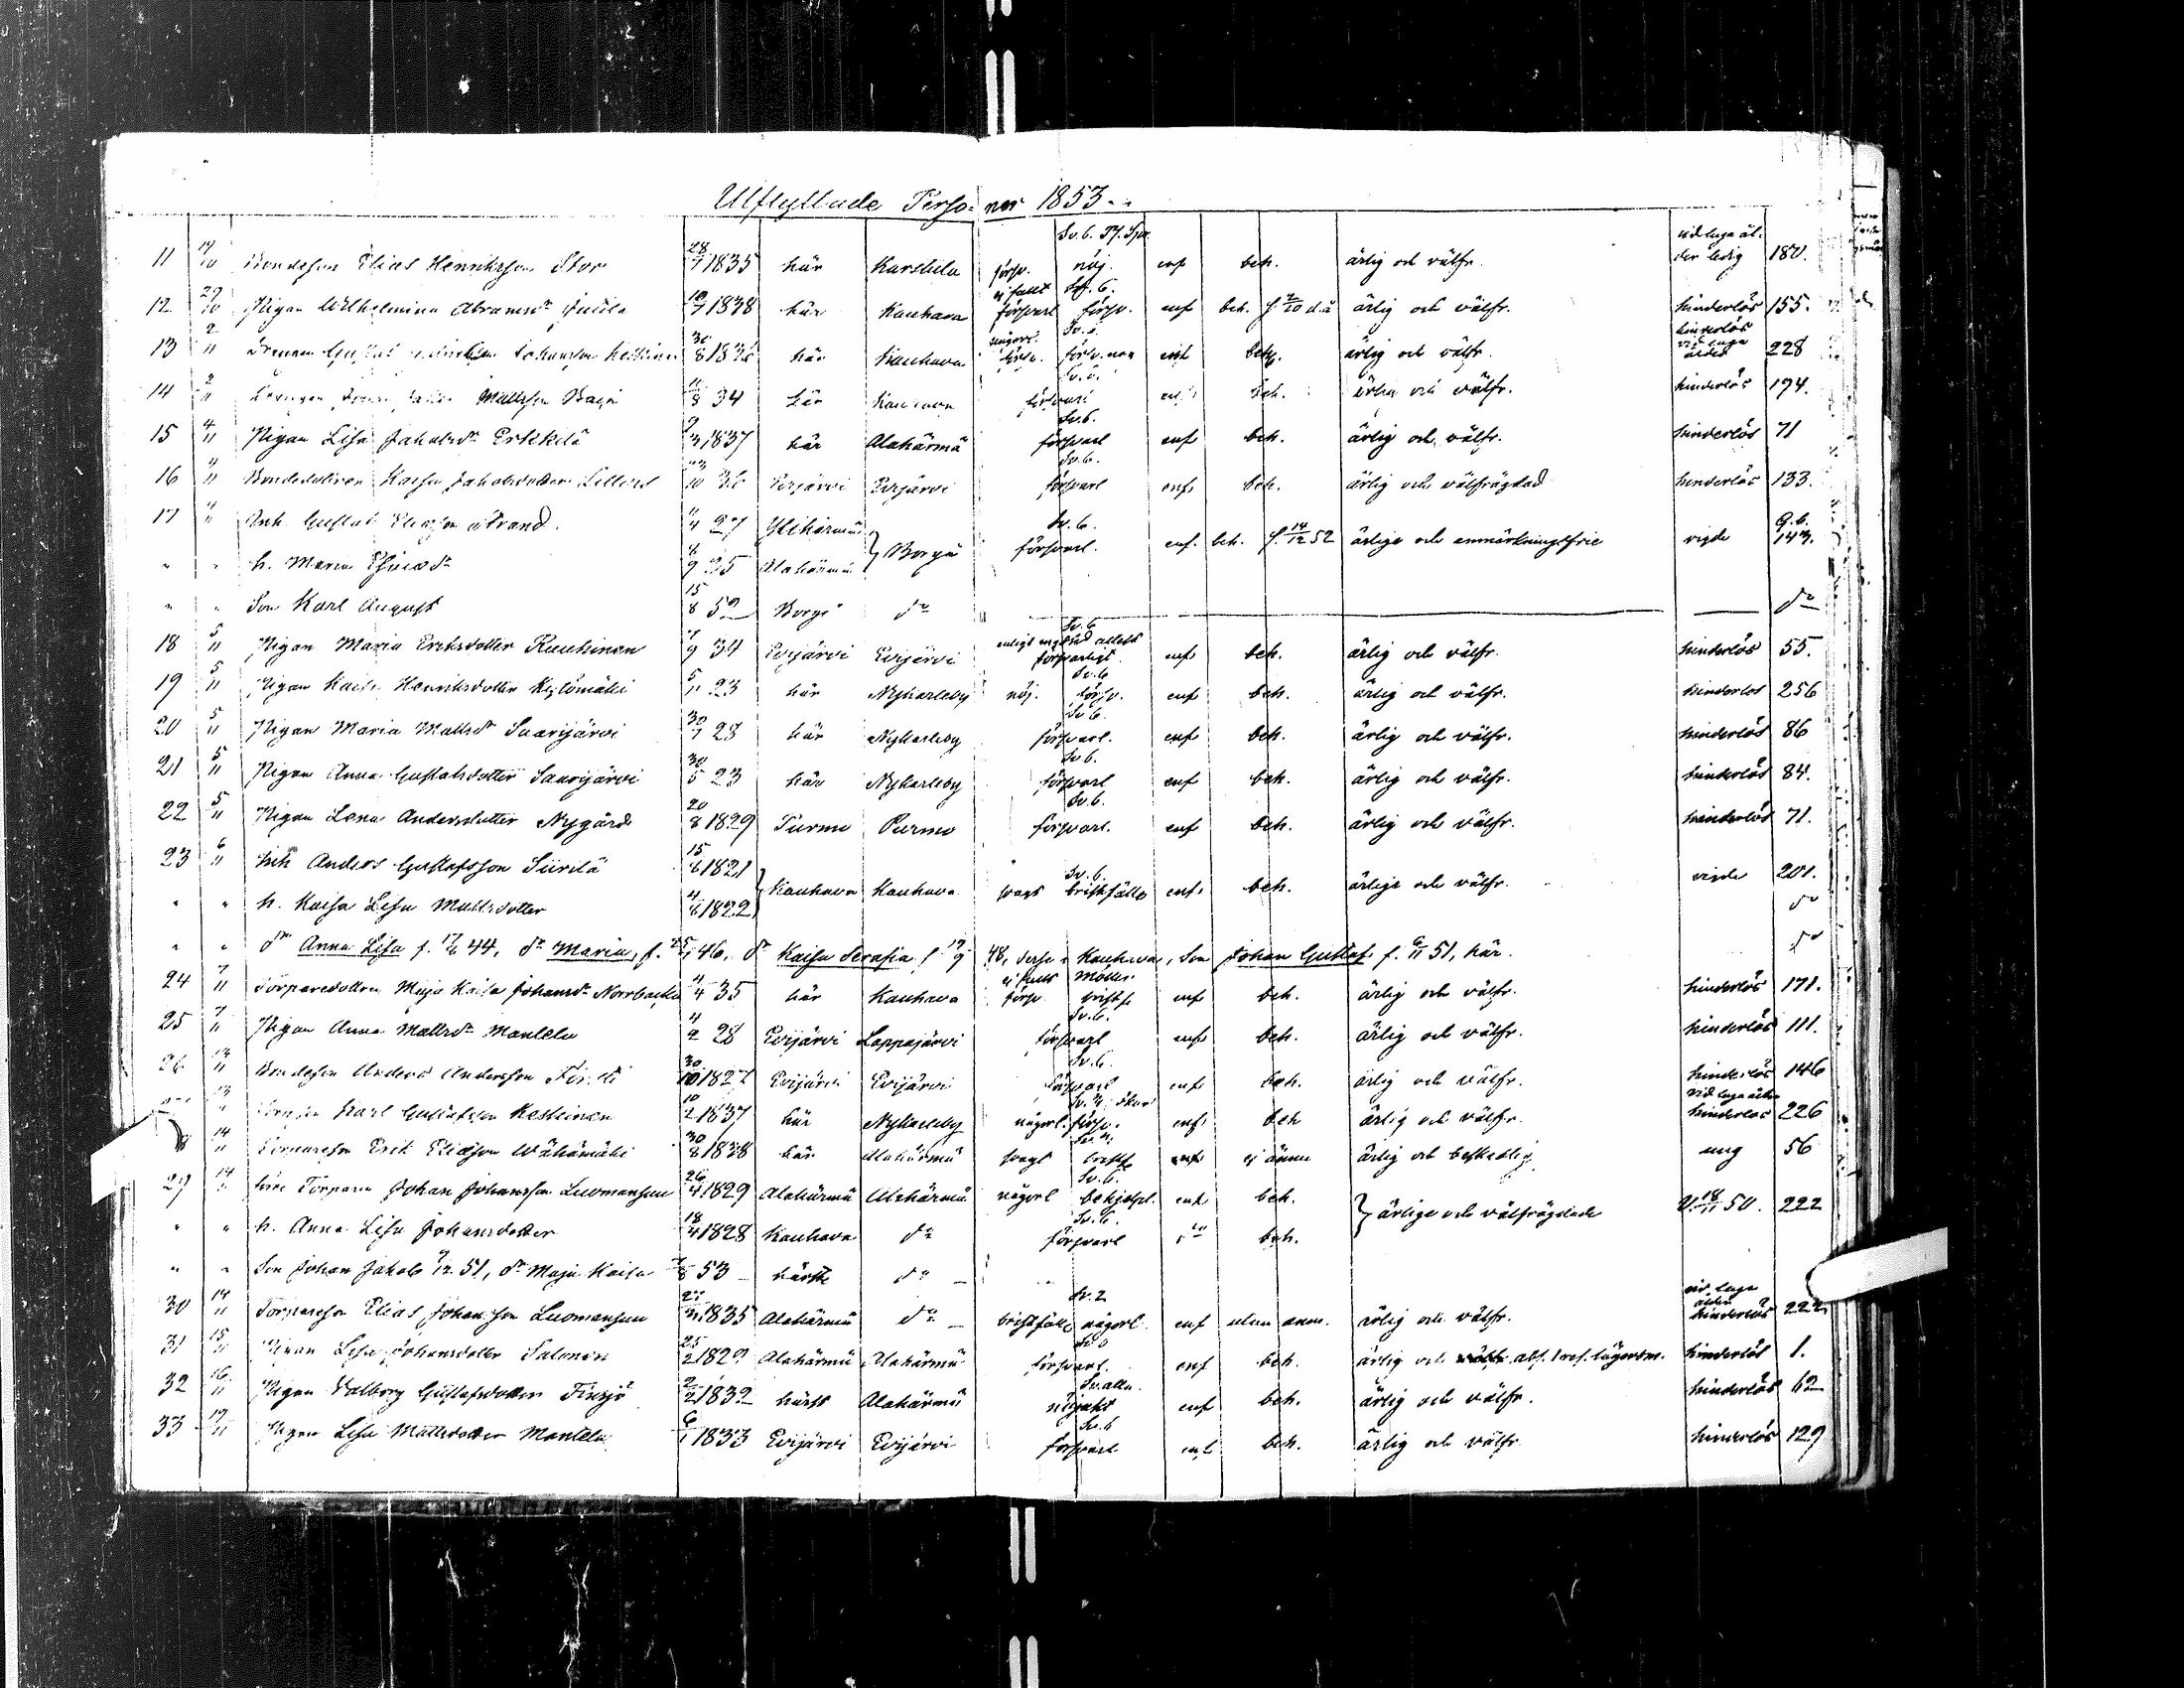 Utflyttade Personer 1853.
11 14/10 Bondeson Elias Henriksson Stor 28/7 1835 här Karstula försv. Sv. 6. nöj. enf beh. ärlig och välfr. vid laga ålder ledig 180.
12 29/10 Pigan Wilhelmina Abramsdr 10/7 1838 här Kauhava ej fullt försvarl försv. enf beh. f 2/10 d.å ärlig och välfr. hinderlös 155.
13 2/11 Drengen Gustaf Johansson 30/8 här Kauhava någorl. försv. Sv. 6. enf beh. ärlig och välfr. hinderlös vid laga ålder 228
14 2/11 Drengen Mattsson 11/8 34 här Kauhava Sv. 6. försvarl enf beh. ärlig och välfr. hinderlös 194.
15 4/11 Pigan Lisa Jakobsdr Erkkilä 9/3 1837 här Alahärmä Sv. 6. försvarl enf beh. ärlig och välfr. hinderlös 71
16 4/11 Bondedottren Kaisa Jakobsdotter 36 Evijärvi Evijärvi Sv. 6. försvarl enf. beh. ärlig och välfrägdad hinderlös 133.
17 4/11 Inh. Gustaf Eliasson Strand. 11/4 27 Ylihärmä } Borgå Sv. 6. försvarl. enf. beh. f. 14/12 52 ärliga och anmärkningsfrie vigde 143.
" " h. Maria Esaiasdr 6/9 25 Alahärmä
" " Son Karl August 15/8 52 Borgå dr dr
18 5/11 Pigan Maria Eriksdotter Kauhinen 7/9 34 Evijärvi Evijärvi enligt attest Sv. 6 försvarligt. enf. beh. ärlig och välfr. hinderlös 55.
19 5/11 Pigan Kaisa Henriksdotter Kytömäki 5/11 23 här Nykarleby nöj. Sv. 6 försv. enf beh. ärlig och välfr. hinderlös 256
20 5/11 Pigan Maria Mattsdr Saarijärvi 30/7 28 här Nykarleby Sv. 6. försvarl. enf beh. ärlig och välfr. hinderlös 86
21 5/11 Pigan Anna Gustafsdotter Saarijärvi 30/5 23 här Nykarleby Sv. 6. försvarl enf beh. ärlig och välfr. hinderlös 84.
22 5/11 Pigan Lena Andersdotter Nygård 20/8 1829 Purmo Purmo Sv. 6. försvarl. enf beh. ärlig och välfr. hinderlös 71.
23 6/11 Inh Anders Gustafsson Siirilä 15/6 1821 } Kauhava Kauhava svagt Sv. 6. bristfälle enf. beh. ärliga och välfr. vigde 201.
" " h. Kaisa Lisa Mattsdotter 4/6 1822 dr
" " dr Anna Lisa f. 17/6 44, dr Maria, f. 46, dr Kaisa Serafia f 19/9 48, i Kauhava, Son Johan Gustaf f. 6/11 51, här. dr
24 7/11 Torparedottren Maja Kaisa Johansdr Norrbacka 4/4 35 här Kauhava ej fullt försv bristf. enf beh. ärlig och välfr. hinderlös 171.
25 7/11 Pigan Anna Mattsdr Mantela 4/2 28 Evijärvi Lappajärvi Sv. 6. försvarl enf. beh. ärlig och välfr. hinderlös 111.
26 12/11 Bondeson Anders Andersson 30/10 1827 Evijärvi Evijärvi Sv. 6. försvarl enf beh. ärlig och välfr. hinderlös 146
13/11 Karl Gustafsson Keskinen 10/2 1837 här Nykarleby någorl. försv. enf. beh ärlig och välfr. vid laga ålder hinderlös 226
14/11 Torpareson Erik Eliasson Wähämäki 30/8 1838 här Alahärmä svagt bristf. enf ej ännu ärlig och beskedlig ung 56
29 14/11 Torparen Johan Johansson Luomansuu 26/4 1829 Alahärmä Alahärmä någorl Sv. 6. behjelpl. enf. beh. } ärliga och välfrägdade V. 18/11 50. 222
" " h. Anna Lisa Johansdotter 18/4 1828 Kauhava dr Sv. 6. försvarl dr beh.
" " Son Johan Jakob 9/12 51, dr Maja Kaisa 7/8 53 härst. dr
30 14/11 Torpareson Elias Johansson Luomansuu 1835 Alahärmä dr bristfälle Sv. 2 någorl. enf utan anm. ärlig och välfr. vid laga ålder hinderlös 222
31 15/11 Pigan Lisa Johansdotter Salonen 25/2 1829 Alahärmä Alahärmä försvarl. enf beh. ärlig och abs. f. oäf. lägersm. hinderlös 1.
32 16/11 Pigan Valborg Gustafsdotter Finsjö 2/2 1832 härst Alahärmä Sv. alla. nöjakt enf beh. ärlig och välfr. hinderlös 62
33 17/11 Pigan Lisa Mattsdotter Mantela 6/1 1833 Evijärvi Evijärvi Sv. 6 försvarl enf. beh. ärlig och välfr hinderlös 129